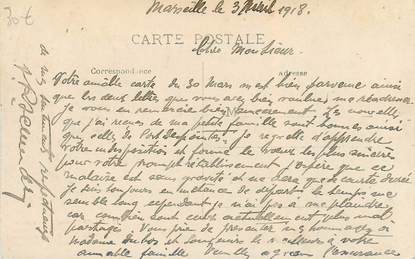 30€
Marseille le 3 Avril 1918.
CARTE POSTALE
Cher Monsieur.
Correspondance
adresse
Votre aimable carte du 30 Mars m'est bien parvenue ainsi
que les deux lettres que vous avez bien voulu me réadresser
Je vous en remercie bien sincèrement. Les nouvelles
que j'ai reçues de ma petite famille sont bonnes ainsi
que celles de Port Je regrette d'apprendre
votre indisposition et forme le vœux les plus sincère
pour votre prompt rétablissement j'espère que ce
malaise est sans gravité et ne sera que de courte durée
Je suis toujours en instance de départ le temps me
semble long cependant je n'ai pas à me plaindre
car combien sont ceux actuellement plus mal
partagés Vous prie de présenter mes hommages à
Madame Dubos et toujours le meilleurs à votre
aimable famille Veuillez agréer l'assurance
de mes sentiments respectueux